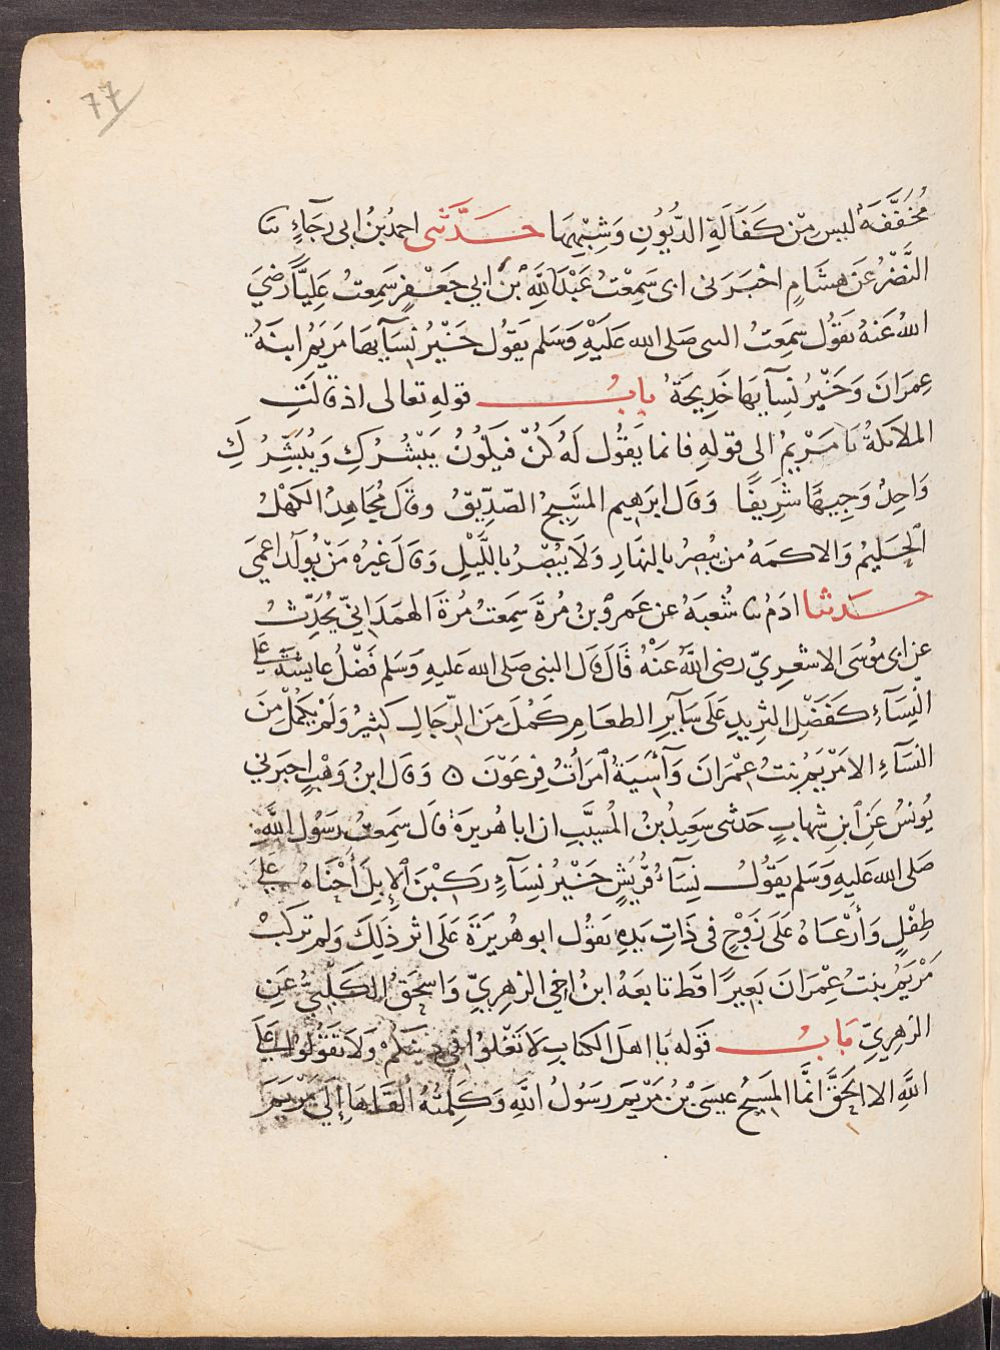 77
مُخَفَّفَةً ليس مِنْ كَفَالَةِ الدُّيُونِ وَشِبْهِهَا حَدَّثَنى احمدُ بنُ ابى رجَآءٍ ثنا
النَّضْرُ عَن هشَامٍ اخبَرَنى ابى سَمِعْتُ عَبْدَ اللهِ بنَ ابي جَعْفرٍ سَمِعتُ عَلِيًّا رَضيَ
اللهُ عَنهُ يقوُل سمِعَتُ النبى صَلى الله عَلَيْهِ وَسَلم يَقوُل خَيْرُ نِسَآيِهَا مَريَمُ ابنَةُ
عِمرَانَ وَخَيْرُ نِسآيِهَا خَدِيجَةُ بابُ قوله تعالى اذ قَالَتِ
الملآيكةُ يَا مَرْيمُ الى قَولهِ فانما يَقوُل لَهُ كُنْ فَيَكُونُ يَبْشُرُكِ وَيُبَشِّرُكِ
وَاحِدٌ وَجِيهًا شَرِيفًا وَقَال ابرَهِيم المسَيحُ الصّدِّيقُ وقَالَ مُجَاهِدٌ الكَهْلُ
الحَليمُ وَالاكمَهُ من يُبصِرُ بالنهَارِ وَلَا يُبْصِرُ بالليْلِ وَقالَ غيرُه مَنْ يُولَد اعمَى
حَدثنا ادَمُ ثنا شُعبَةُ عن عَمرِو بنِ مُرَّةَ سَمِعتُ مُرَّةَ الهمَدَانيّ يُحَدِّثُ
عن ابى مُوسَى الاشعَرِيّ رضى اللهُ عَنْهُ قَالَ قَالَ النبى صَلى الله عَليهِ وَسَلم فَضْلُ عايشَةَ عَلَى
النِّسَآءِ كَفَضْلِ الثرِيدِ عَلَى سَآيرِ الطعَامِ كَمُلَ مِنَ الرّجَالِ كثيرٌ وَلَمْ يَكمُلْ مِنَ
النسَآءِ الا مَرْيَمُ بنتُ عِمْرَانَ وَآسِيَةُ امرَأتُ فِرعَوْنَ ٥ وَقَال ابنُ وَهْبٍ اخبَرَني
يُونسُ عَنِ ابنِ شِهَابٍ حَدثنى سَعِيدُ بنُ المُسَيَّبِ ان ابا هُرَيرَةَ قَال سَمِعتُ رسَوُلَ اللهِ
صَلى الله عَليهِ وَسَلم يَقوُلُ نِسَآءُ قُرَيشٍ خَيْرُ نِسَآءٍ رَكبْنَ الإبِلَ أَحْنَاهُ عَلَى
طِفْلٍ وَأَرْعَاهُ عَلَى زَوْجٍ فى ذَاتِ يَدِهِ يقوُل ابو هُرَيرَةَ عَلَى اثر ذَلِكَ وَلم تَركَبْ
مَرْيَمُ بنتُ عِمْرَانَ بَعِيرًا قَطُ تابعَهُ ابنُ اخي الزهرِيِّ وَاسحَقُ الكَلْبِيُّ عَنِ
الزهرِيِّ بَابُ قَوله يَا اهلَ الكتابِ لَا تَغْلوُا فِي دِينِكُمْ وَلَا تَقوُلوُا عَلَى
اللهِ الا الحَقَّ انَّمَا المَسيحُ عِيسَى بنُ مَرْيَم رَسَوُلُ اللهِ وَكَلِمَتُهُ ألقَاهَا إلَى مَرْيَمَ